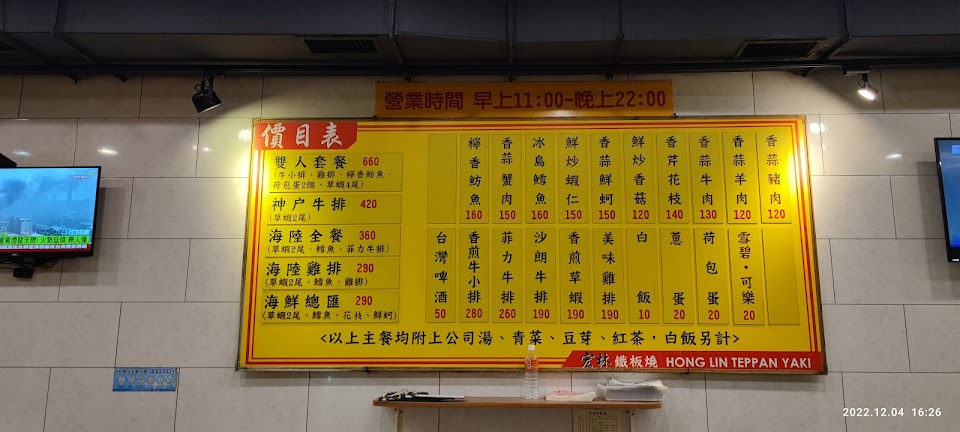 營業時間 早上11:00~晚上22:00
價目表
雙人套餐 660
(牛小排、雞排、檸香魴魚、
荷包蛋2個、草蝦4尾)
神户牛排 420
(草蝦2尾)
海陸全餐 360
(草蝦2尾、鱈魚、菲力牛排)
海陸雞排 290
(草蝦2尾、鱈魚、雞排)
海鮮總匯 290
(草蝦2尾、鱈魚、花枝、鮮蚵)
檸香魴魚 160
香蒜蟹肉 150
冰島鱈魚 160
鮮炒蝦仁 150
香蒜鮮蚵 150
鮮炒香菇 120
香芹花枝 140
香蒜牛肉 130
香蒜羊肉 120
香蒜豬肉 120
台灣啤酒 50
香煎牛小排 280
菲力牛排 260
沙朗牛排 190
香煎草蝦 190
美味雞排 190
白飯 10
蔥蛋 20
荷包蛋 20
雪碧·可樂 20
<以上主餐均附上公司湯、青菜、豆芽、紅茶,白飯另計>
宏林 鐵板燒 HONG LIN TEPPAN YAKI
2022.12.04 16:26